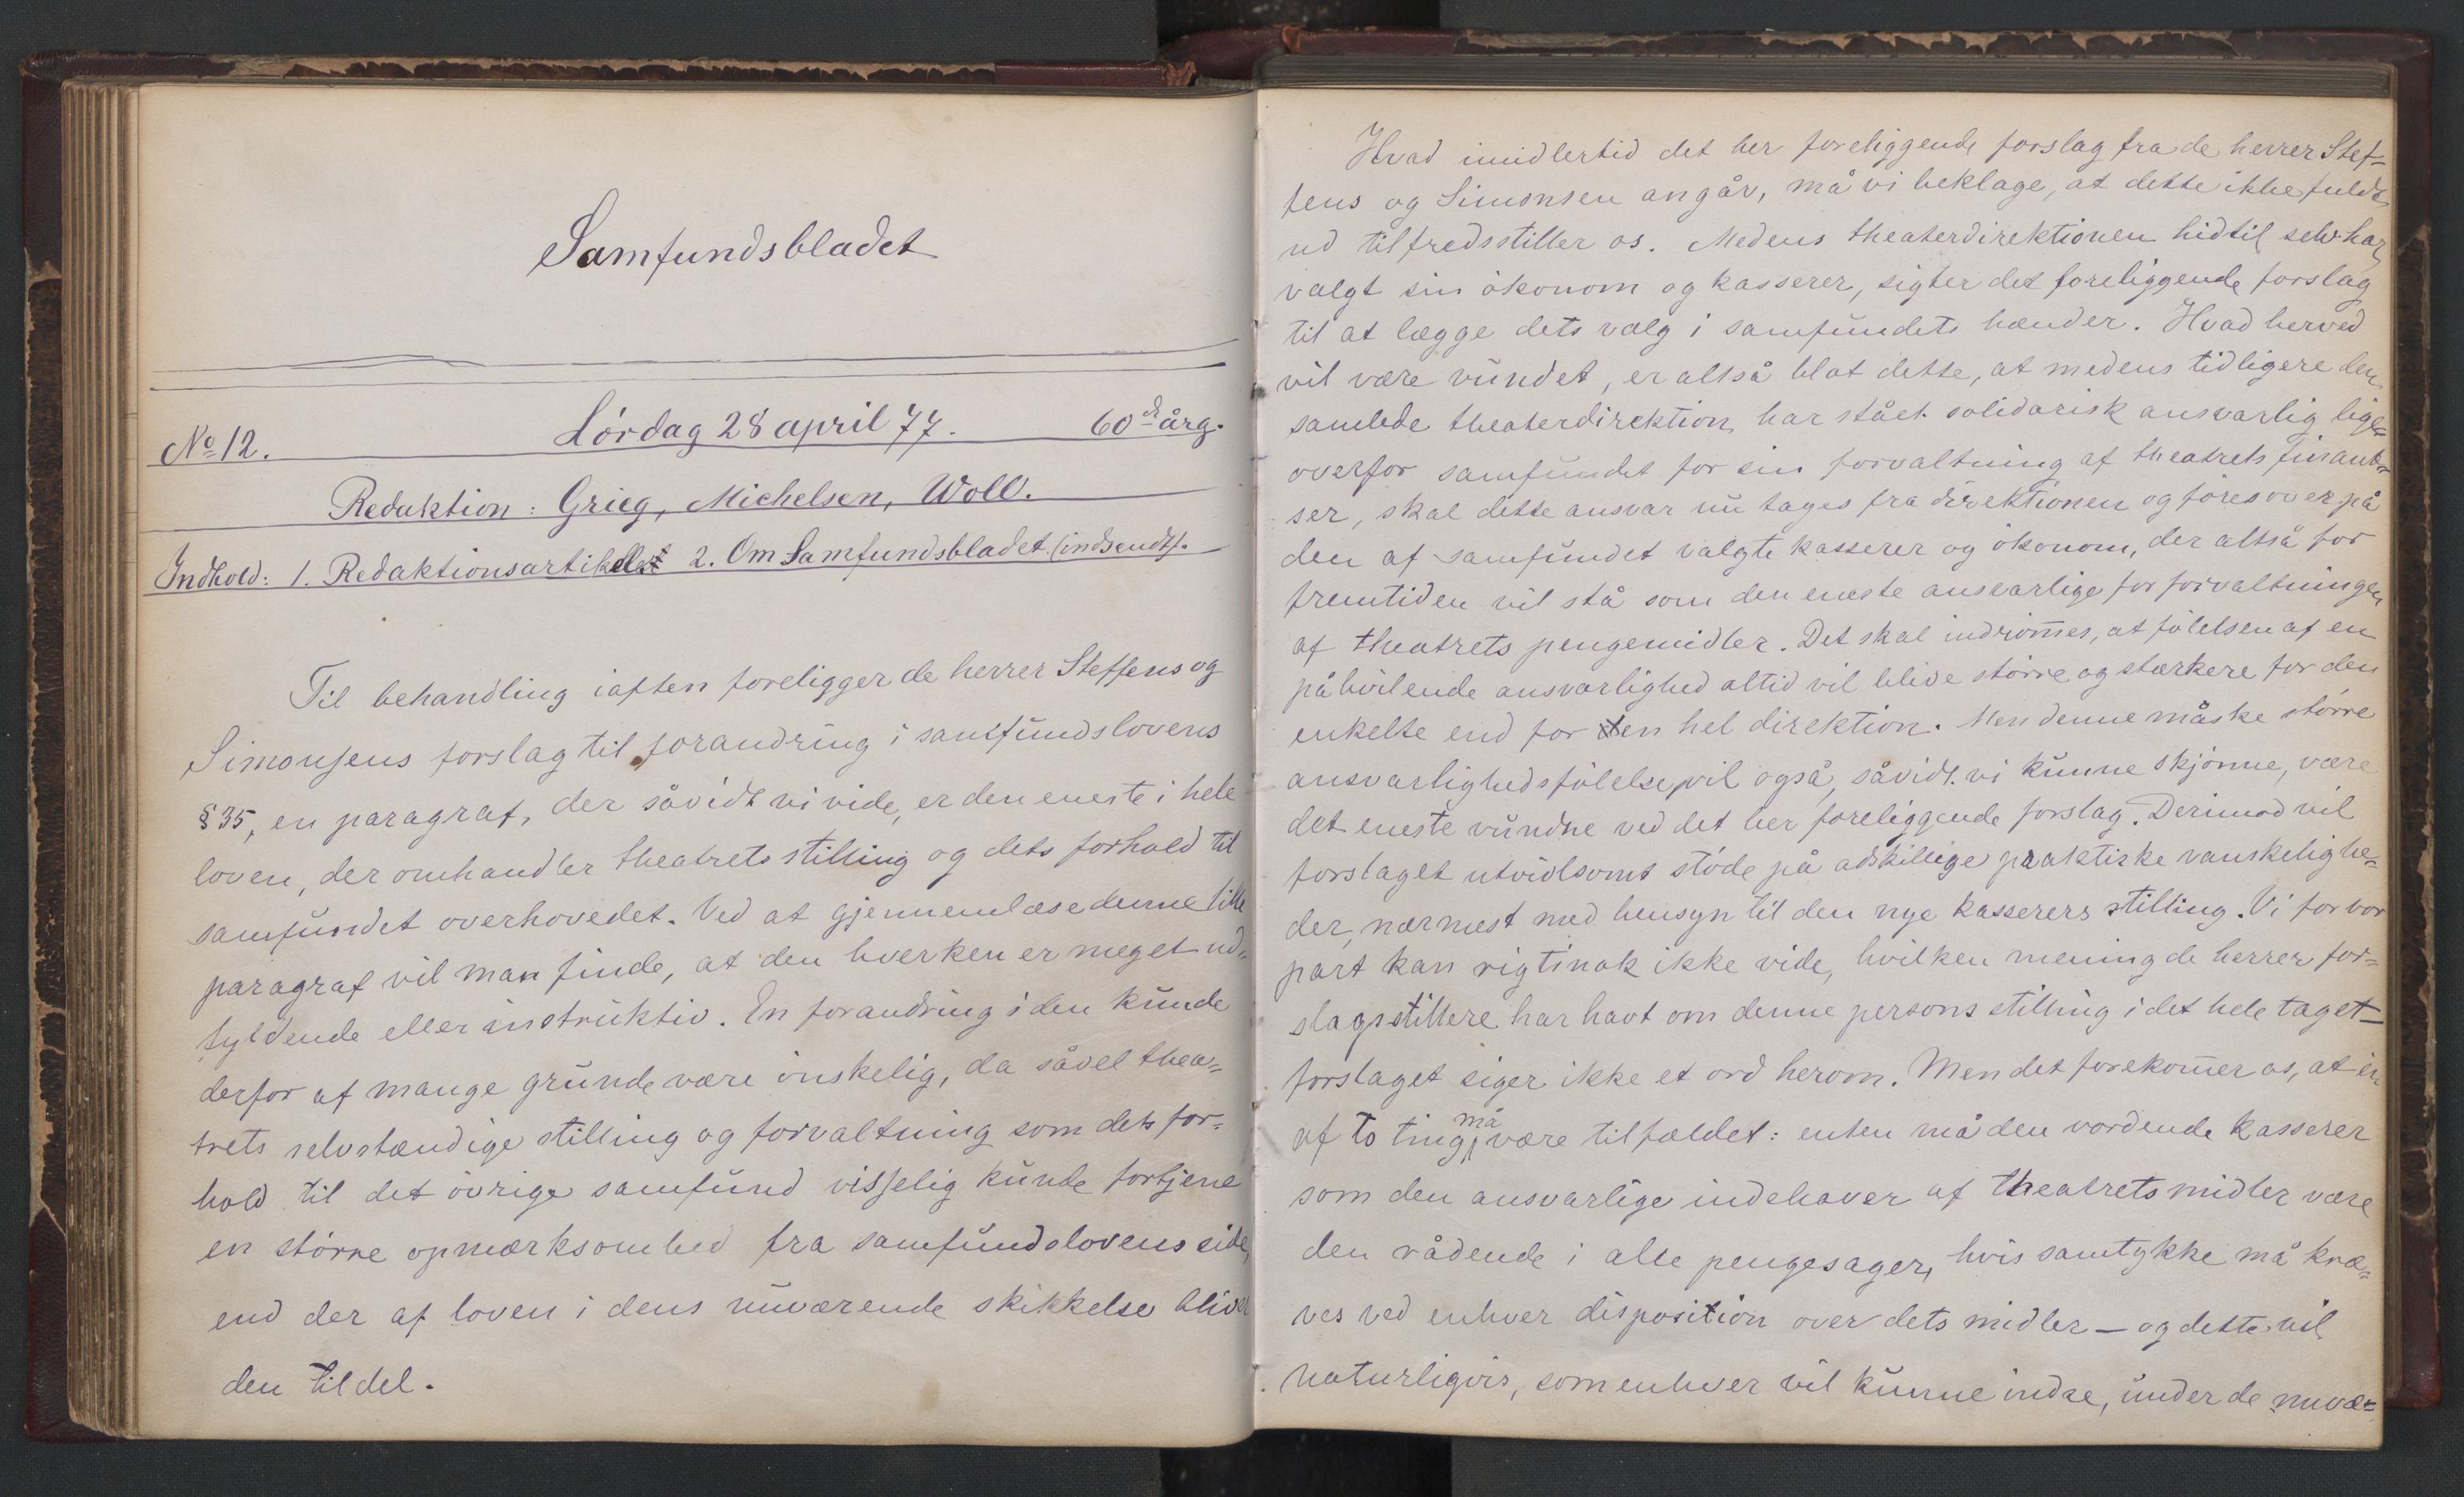 Samfundsbladet
No 12. Lördag 28 april 77. 60de årg.
Redaktion: Grieg, Michelsen, Woll.
Indhold: 1. Redaktionsartikel 2. Om Samfundsbladet (indsendt).
Til behandling iaften foreligger de herrer Steffens og
Simonsens forslag til forandring i samfundslovens
§ 35, en paragraf, der såvidt vi vide, er den eneste i hele
loven, der omhandler theatrets stilling og dets forhold til
samfundet overhovedet. Ved at gjennemlæse denne lille
paragraf vil man finde, at den hverken er meget ud-
fyldende eller instruktiv. En forandring i den kunde
derfor af mange grunde være önskelig, da såvel thea-
trets selvstændige stilling og forvaltning som dets for-
hold til det övrige samfund visselig kunde fortjene
en större opmærksomhed fra samfundslovens side,
end der af loven i dens nuværende skikkelse bliver
den tildel.
Hvad imidlertid det her foreliggende forslag fra de herrer Stef-
fens og Simonsen angår, må vi beklage, at dette ikke fuldt
ud tilfredsstiller os. Medens theaterdirektionen hidtil selv har
valgt sin ökonom og kasserer, sigter det foreliggende forslag
til at lægge dets valg i samfundets hænder. Hvad herved
vil være vundet, er altså blot dette, at medens tidligere den
samlede theaterdirektion har stået solidarisk ansvarlig lige-
overfor samfundet for sin forvaltning af theatrets finant-
ser, skal dette ansvar nu tages fra direktionen og föres over på
den af samfundet valgte kasserer og ökonom, der altså for
fremtiden vil stå som den eneste ansvarlige for forvaltningen
af theatrets pengemidler. Det skal indrömes, at fölelsen af en
påhvilende ansvarlighed altid vil blive större og stærkere for den
enkelte end for en hel direktion. Men denne måske större
ansvarlighedsfölelse vil også, såvidt vi kunne skjönne, være
det eneste vundne ved det her foreliggende forslag. Derimod vil
forslaget utvivlsomt stöde på adskillige praktiske vanskelighe-
der, nærmest med hensyn til den nye kasserers stilling. Vi for vor
part kan rigtinok ikke vide, hvilken mening de herrer for-
slagsstillere har havt om denne persons stilling i det hele taget –
forslaget siger ikke et ord herom. Men det forekomer os, at én
af to ting må være tilfældet: enten må den vordende kasserer
som den ansvarlige indehaver af theatrets midler være
den rådende i alle pengesager, hvis samtykke må kræ-
ves ved enhver disposition over dets midler – og dette vil
naturligvis, som enhver vil kunne indse, under de nuvæ-